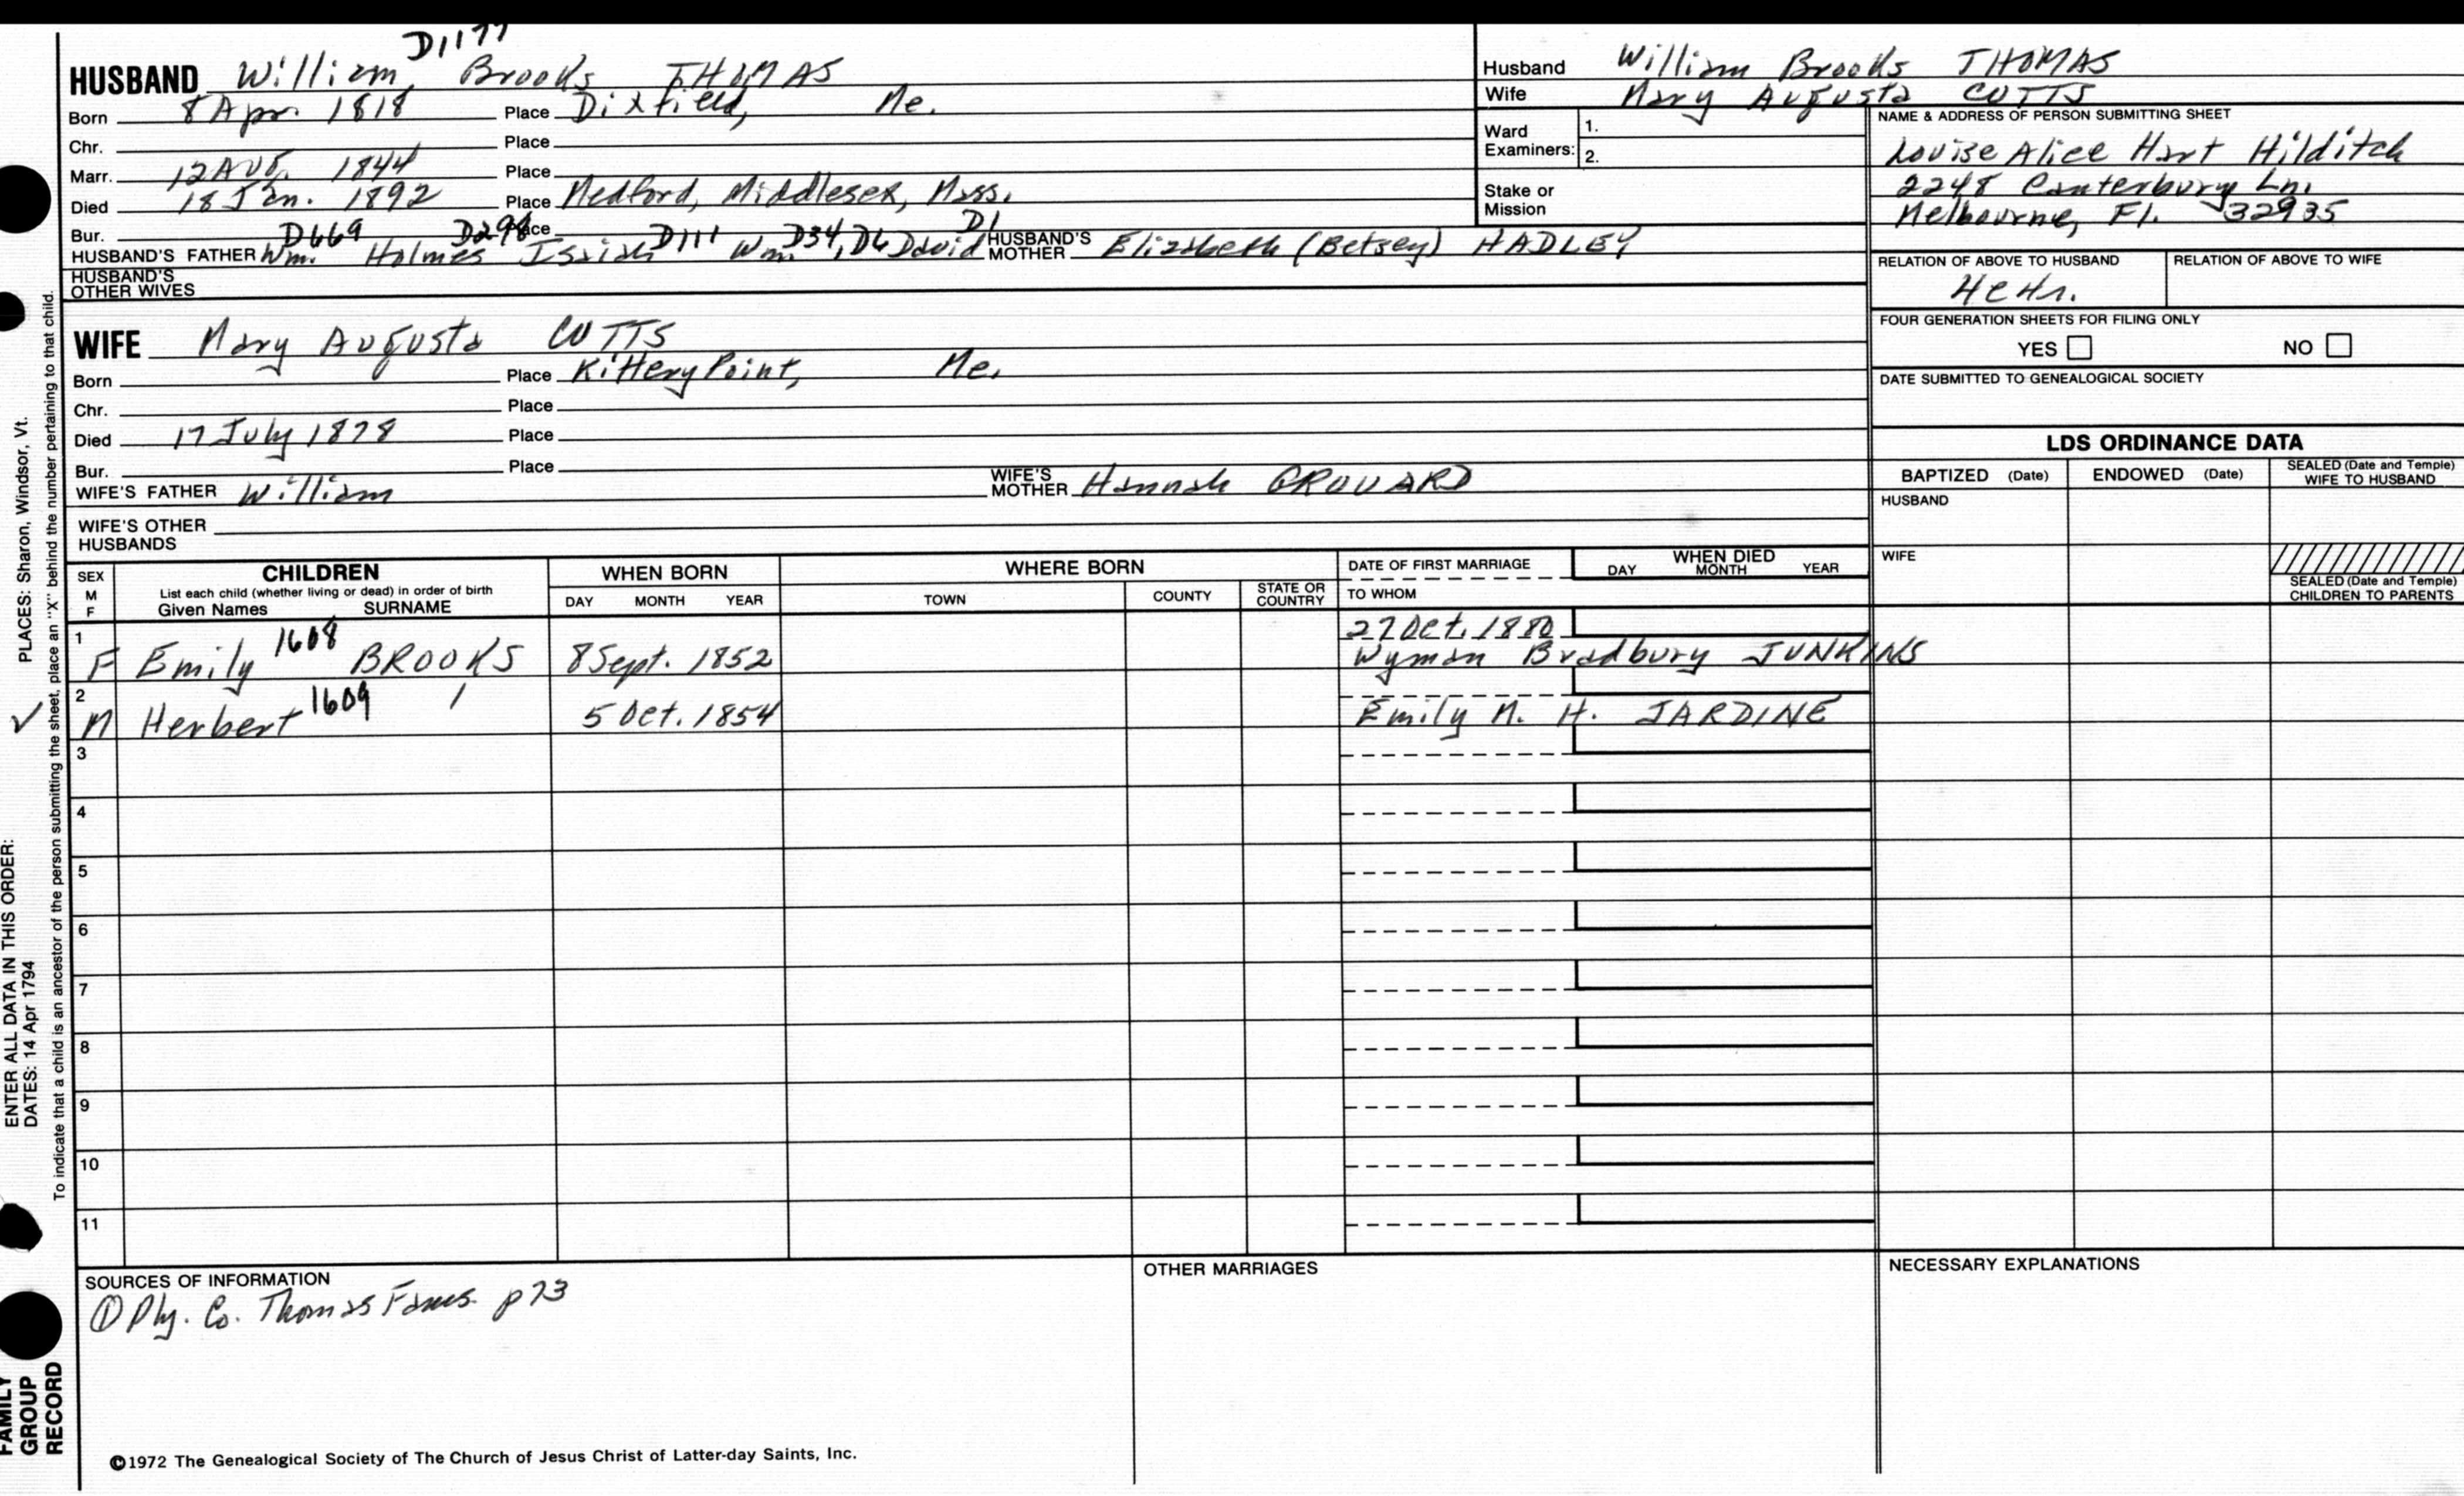 D1177
HUSBAND William Brooks THOMAS
Born 8 Apr. 1818 Place Dixfield, Me.
Chr. Place
Marr. 12 Aug. 1844 Place
Died 18 Jan. 1892 Place Medford, Middlesex, Mass.
Bur. Place
D669 D298 D111 D34, D6 D1
HUSBAND'S FATHER Wm. Holmes Isaiah Wm. David HUSBAND'S MOTHER Elizabeth (Betsey) HADLEY
HUSBAND'S OTHER WIVES
WIFE Mary Augusta CUTTS
Born Place Kittery Point, Me.
Chr. Place
Died 17 July 1878 Place
Bur. Place
WIFE'S FATHER William WIFE'S MOTHER Hannah GROUARD
WIFE'S OTHER HUSBANDS
Husband William Brooks THOMAS
Wife Mary Augusta CUTTS
Ward Examiners: 1.
2.
Stake or Mission
NAME & ADDRESS OF PERSON SUBMITTING SHEET
Louise Alice Hart Hilditch
2248 Canterbury Ln.
Melbourne, Fl. 32935
RELATION OF ABOVE TO HUSBAND RELATION OF ABOVE TO WIFE
FOUR GENERATION SHEETS FOR FILING ONLY
YES NO
DATE SUBMITTED TO GENEALOGICAL SOCIETY
LDS ORDINANCE DATA
BAPTIZED (Date) ENDOWED (Date) SEALED (Date and Temple) WIFE TO HUSBAND
HUSBAND
WIFE
SEALED (Date and Temple) CHILDREN TO PARENTS
SEX M F
CHILDREN
List each child (whether living or dead) in order of birth
Given Names SURNAME
WHEN BORN
DAY MONTH YEAR
WHERE BORN
TOWN COUNTY STATE OR COUNTRY
DATE OF FIRST MARRIAGE
TO WHOM
WHEN DIED
DAY MONTH YEAR
1 1608 27 Oct. 1880
F Emily BROOKS 8 Sept. 1852 Wyman Bradbury JUNKINS
2 1609
M Herbert 5 Oct. 1854 Emily M. H. JARDINE
3
4
5
6
7
8
9
10
11
SOURCES OF INFORMATION
① Ply. Co. Thomas Fams. p73
OTHER MARRIAGES
NECESSARY EXPLANATIONS
©1972 The Genealogical Society of The Church of Jesus Christ of Latter-day Saints, Inc.
FAMILY GROUP RECORD
ENTER ALL DATA IN THIS ORDER:
DATES: 14 Apr 1794
PLACES: Sharon, Windsor, Vt.
To indicate that a child is an ancestor of the person submitting the sheet, place an "X" behind the number pertaining to that child.